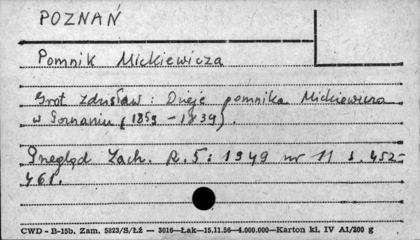 POZNAŃ
Pomnik Mickiewicza
Grot Zdzisław: Dzieje pomnika Mickiewicza
w Poznaniu (1859 - 1939).
Przegląd Zach. R.5: 1949 nr 11 s. 452-
461.
CWD - B-15b. Zam. 5323/S/Łź — 3016—Łak—15.11.56—4.000.000—Karton kl. IV A1/200 g